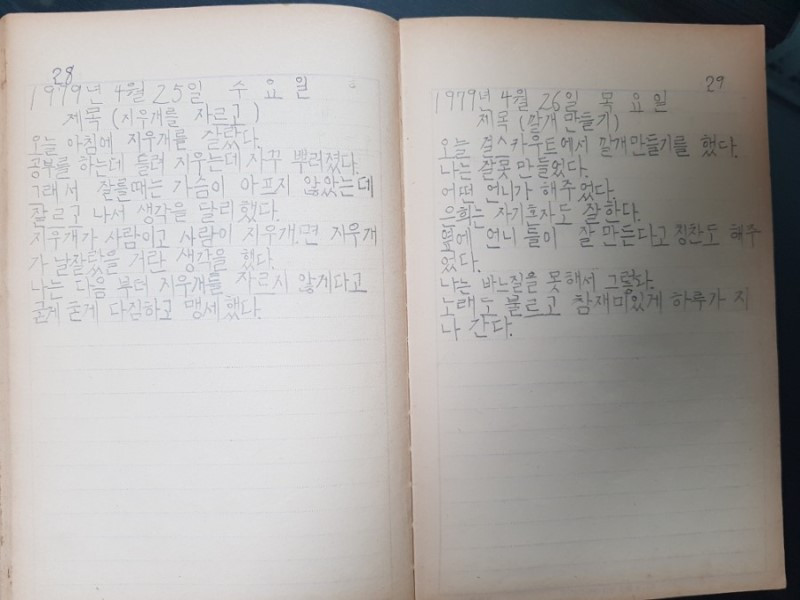 28
1979년 4월 25일 수요일
제목 (지우개를 자르고)
오늘 아침에 지우개를 잘랐다.
공부를 하는데 틀려 지우는데 자꾸 뿌러졌다.
그래서 잘를때는 가슴이 아프지 않았는데
잘르고 나서 생각을 달리했다.
지우개가 사람이고 사람이 지우개.면 지우개
가 날잘랐을 거란 생각을 했다.
나는 다음 부터 지우개를 자르지 않게다고
굳게 굳게 다짐하고 맹세했다.
29
1979년 4월 26일 목요일
제목 (깔개 만들기)
오늘 걸스카우트에서 깔개만들기를 했다.
나는 잘못 만들었다.
어떤 언니가 해주었다.
은희는 자기혼자도 잘한다.
옆에 언니들이 잘 만든다고 칭찬도 해주
었다.
나는 바느질을 못해서
노래도 불르고 참재미있게 하루가 지
나 간다.